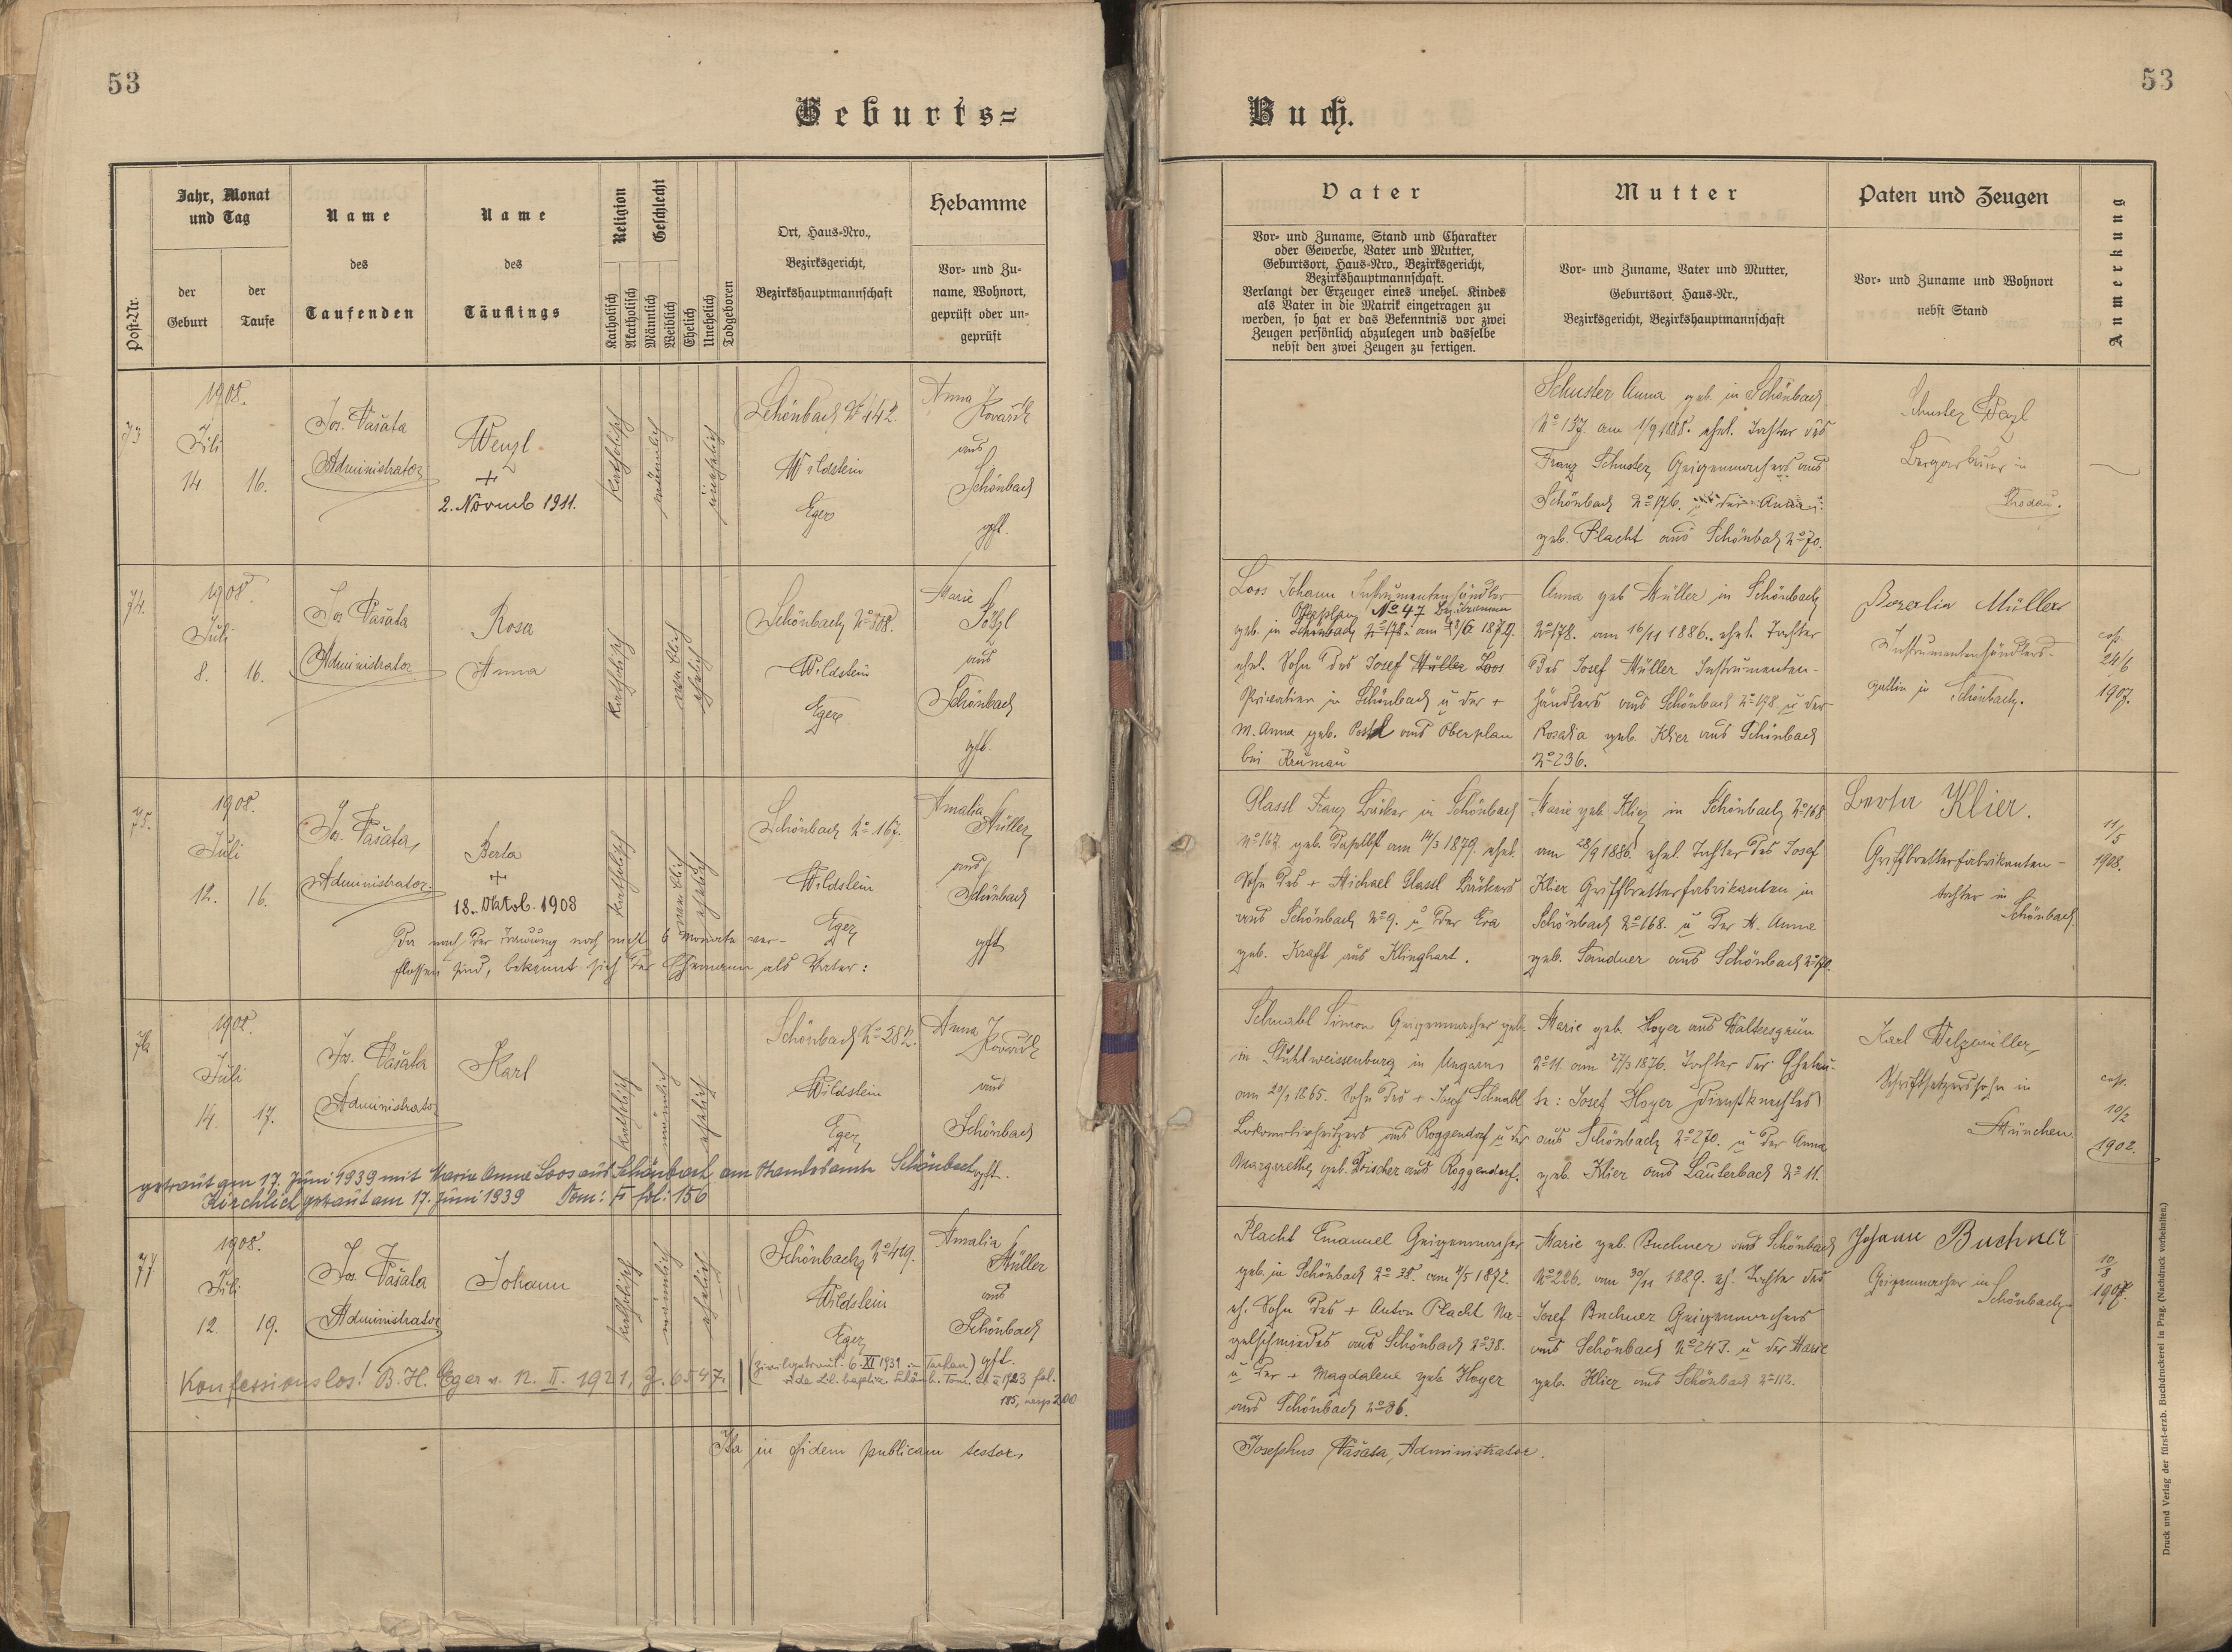 53
53
Geburts=
Buch.
Post-Nr.
Jahr, Monat
und Tag
der
Geburt
der
Taufe
Name
des
Taufenden
Name
des
Täuflings
Religion
Katholisch
Akatholisch
Geschlecht
Männlich
Weiblich
Ehelich
Unehelich
Todgeboren
Ort, Haus-Nro.,
Bezirksgericht,
Bezirkshauptmannschaft
Hebamme
Vor- und Zu-
name, Wohnort,
geprüft oder un-
geprüft
Vater
Vor- und Zuname, Stand und Charakter
oder Gewerbe, Vater und Mutter,
Geburtsort, Haus-Nro., Bezirksgericht,
Bezirkshauptmannschaft.
Verlangt der Erzeuger eines unehel. Kindes
als Vater in die Matrik eingetragen zu
werden, so hat er das Bekenntnis vor zwei
Zeugen persönlich abzulegen und dasselbe
nebst den zwei Zeugen zu fertigen.
Mutter
Vor- und Zuname, Vater und Mutter,
Geburtsort, Haus-Nr.,
Bezirksgericht, Bezirkshauptmannschaft
Paten und Zeugen
Vor- und Zuname und Wohnort
nebst Stand
Anmerkung
73
1908.
Juli
14 16.
Jos. Vašata
Administrator
Wenzl
+
2. Novemb 1911.
katholisch
männlich
unehelich
Schönbach No 142.
Wildstein
Eger
Anna
aus
Schönbach
gpft.
Schuster Anna geb. in Schönbach
No 137. am 1/9 1888. ehel. Tochter des
Franz Schuster, Geigenmachers aus
Schönbach No 176. u der Anna
geb. Placht aus Schönbach No 70.
Schuster Wenzl
in
74.
1908.
Juli
8. 16.
Jos Vašata
Administrator
Rosa
Anna
katholisch
weiblich
ehelich
Wildstein
Eger
Marie
aus
Schönbach
gpft.
Loos Johann Instrumentenhändler
Oberplan No 47
geb. in Schönbach
ehel. Sohn des Josef Müller Loos
Privatier in Schönbach u der +
M. Anna geb. aus Oberplan
bei Krumau
Anna geb Müller in Schönbach
No 178. am 16/11 1886. ehel. Tochter
des Josef Müller Instrumenten-
händlers aus Schönbach No 178 u der
Rosalia geb. Klier aus Schönbach
No 236.
Müller
Instrumentenhändlers-
gattin in Schönbach.
cop.
24/6
1907.
75.
1908.
Juli
12. 16.
Jos. Vašata,
Administrator.
Berta
+
18. Oktob. 1908
katholisch
weiblich
ehelich
Da nach der Trauung noch nicht 6 Monate ver-
flossen sind, bekennt sich der Ehemann als Vater:
Schönbach No 167.
Wildstein
Eger
Amalia
Müller
aus
Schönbach
gpft
Glassl Franz Bäcker in Schönbach
No 167. geb. daselbst am 14/3 1879. ehel.
Sohn des + Michael Glassl Bäckers
aus Schönbach No 9. u der Eva
geb. Kraft aus Klinghart.
Marie geb. Klier in Schönbach No 168
am 28/9 1886. ehel. Tochter des Josef
Klier Griffbretterfabrikanten in
Schönbach No 168. u der M. Anna
geb. Sandner aus Schönbach
Berta Klier.
Griffbretterfabrikanten-
tochter in
Schönbach
11/5
1908.
76
1908.
Juli
14. 17.
Jos. Vašata
Administrator
Karl
katholisch
männlich
ehelich
Schönbach No 282.
Wildstein
Eger
Anna
aus
Schönbach
gpft.
getraut am 17. Juni 1939 mit Maria Anna Loos aus Schönbach am Standesamte Schönbach
Kirchlich getraut am 17. Juni 1939 Tom: fol: 156
Schnabl Simon Geigenmacher geb.
in Stuhlweissenburg in Ungarn
am 20/1 1865. Sohn des + Josef Schnabl
aus Roggendorf u der
Margarethe geb. aus Roggendorf.
Marie geb. Hoyer aus Waltersgrün
No 11. am 27/3 1876. Tochter der Eheleu-
te: Josef Hoyer Dienstknechtes
aus Schönbach No 270. u der Anna
geb. Klier aus Lauterbach No 11.
Karl Welzmüller,
Schriftsetzerssohn in
München.
cop.
10/2
1902.
77
1908.
Juli
12. 19.
Jos. Vašata
Administrator
Johann
katholisch
männlich
ehelich
Schönbach No 419.
Wildstein
Eger
Amalia
Müller
aus
Schönbach
gpft.
Konfessionslos! B. H. Eger v. 12. II. 1921, Z. 6547.
(Zivilgetraut 6. XI 1931 in Tachau)
Placht Emanuel Geigenmacher
geb. in Schönbach No 38. am 4/5 1872.
eh. Sohn des + Anton Placht Na-
gelschmiedes aus Schönbach No 38.
u der + Magdalena geb Hoyer
aus Schönbach No 86.
Marie geb. Buchner aus Schönbach
No 226. am 30/11 1889. eh. Tochter des
Josef Buchner Geigenmachers
aus Schönbach No 243. u der Marie
geb. Klier aus Schönbach No 112.
Johann Buchner
Geigenmacher in
Schönbach
10/8
1907.
Ita in fidem publicam testor,
Josephus Vašata, Administrator.
Druck und Verlag der fürst-erzb. Buchdruckerei in Prag. (Nachdruck vorbehalten.)